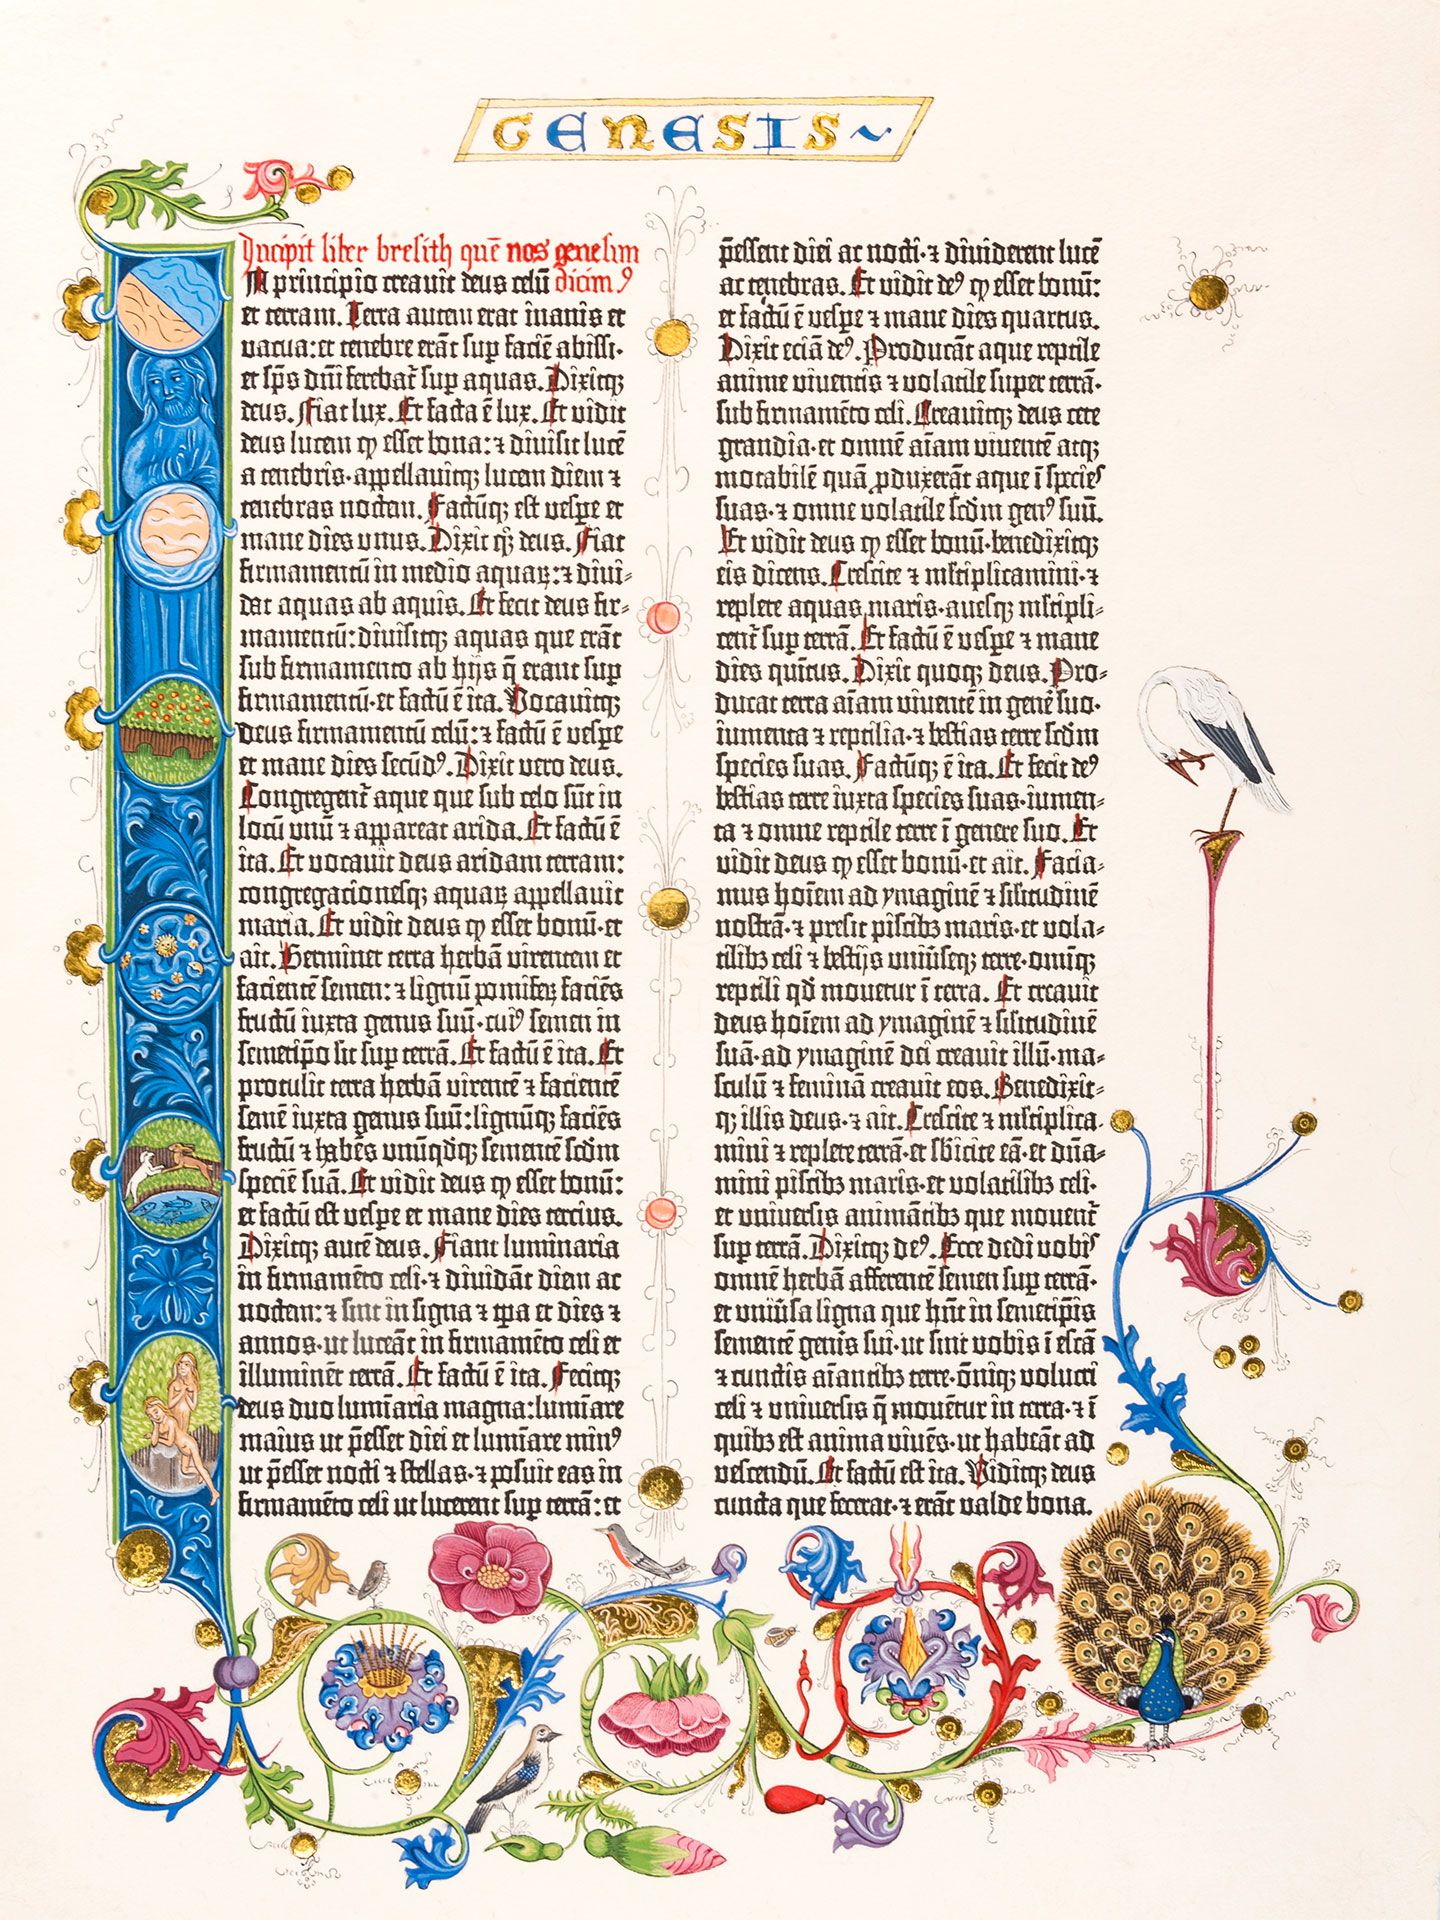 GENESIS
Incipit liber bresith quē nos genesim
In principio creavit deus celū dicim⁹
et terram. Terra autem erat inanis et
vacua: et tenebre erāt sup faciē abissi·
et sp̄s dn̄i ferebat̄ sup aquas. Dixitqꝫ
deus. Fiat lux. Et facta ē lux. Et vidit
deus lucem ꝙ esset bona: ⁊ divisit lucē
a tenebris· appellavitqꝫ lucem diem ⁊
tenebras noctem. Factūqꝫ est vespe et
mane dies unus. Dixit qꝫ deus. Fiat
firmamentū in medio aquaꝝ: ⁊ divi⸗
dat aquas ab aquis. Et fecit deus fir⸗
mamentū: divisitqꝫ aquas que erāt
sub firmamento ab hijs q̄ erant sup
firmamentū· et factū ē ita. Vocavitqꝫ
deus firmamentū celū: ⁊ factū ē vespe
et mane dies secūd⁹. Dixit vero deus.
Congregent̄ aque que sub celo sūt in
locū unū ⁊ appareat arida. Et factū ē
ita. Et vocavit deus aridam terram:
congregacionesqꝫ aquaꝝ appellavit
maria. Et vidit deus ꝙ esset bonū· et
ait. Germinet terra herbā virentem et
facientē semen: ⁊ lignū pomiferꝫ faciēs
fructū iuxta genus suū· cui⁹ semen in
semetip̄o sit sup terrā. Et factū ē ita. Et
protulit terra herbā virentē ⁊ facientē
semē iuxta genus suū: lignūqꝫ faciēs
fructū ⁊ habēs unūqdqꝫ sementē scdm
speciē suā. Et vidit deus ꝙ esset bonū:
et factū est vespe et mane dies tercius.
Dixitqꝫ autē deus. Fiant luminaria
in firmamēto celi· ⁊ dividāt diem ac
noctem: ⁊ sint in signa ⁊ tp̄a et dies ⁊
annos· ut luceāt in firmamēto celi et
illuminēt terrā. Et factū ē ita. Fecitqꝫ
deus duo lumīaria magna: lumīare
maius ut p̄esset diei et lumīare min⁹
ut p̄esset nocti ⁊ stellas· ⁊ posuit eas in
firmamēto celi ut lucerent sup terrā: et
p̄essent diei ac nocti· ⁊ dividerent lucē
ac tenebras. Et vidit de⁹ ꝙ esset bonū:
et factū ē vespe ⁊ mane dies quartus.
Dixit eciā de⁹. Producāt aque reptile
anime viventis ⁊ volatile super terrā·
sub firmamēto celi. Creavitqꝫ deus cete
grandia· et omnē aīam viventē atqꝫ
motabilē quā ꝓduxerāt aque ī species
suas· ⁊ omne volatile scdm gen⁹ suū.
Et vidit deus ꝙ esset bonū· benedixitqꝫ
eis dicens. Crescite ⁊ mltiplicamini· ⁊
replete aquas maris· avesqꝫ mltipli⸗
cent̄ sup terrā. Et factū ē vespe ⁊ mane
dies quītus. Dixit quoqꝫ deus. Pro⸗
ducat terra aīam viventē in genē suo·
iumenta ⁊ reptilia· ⁊ bestias terre scdm
species suas. Factūqꝫ ē ita. Et fecit de⁹
bestias terre iuxta species suas· iumen⸗
ta ⁊ omne reptile terre ī genere suo. Et
vidit deus ꝙ esset bonū· et ait. Facia⸗
mus hoīem ad ymaginē ⁊ silitudinē
nostrā· ⁊ presit piscibꝫ maris· et vola⸗
tilibꝫ celi ⁊ bestijs univseqꝫ terre· omīqꝫ
reptili qd movetur ī terra. Et creavit
deus hoīem ad ymaginē ⁊ silitudinē
suā· ad ymaginē dei creavit illū· ma⸗
sculū ⁊ feminā creavit eos. Benedixit⸗
qꝫ illis deus· ⁊ ait. Crescite ⁊ mltiplica⸗
mini ⁊ replete terrā· et sbicite eā· et dn̄a⸗
mini piscibꝫ maris· et volatilibꝫ celi·
et universis animātibꝫ que movent̄
sup terrā. Dixitqꝫ de⁹. Ecce dedi vobis
omnē herbā afferentē semen sup terrā·
et univsa ligna que hn̄t in semetip̄is
sementē genis sui· ut sint vobis ī escā
⁊ cunctis aīantibꝫ terre· ōniqꝫ volucri
celi ⁊ universis q̄ movētur in terra· ⁊ ī
quibꝫ est anima vivēs· ut habeāt ad
vescendū. Et factū est ita. Viditqꝫ deus
cuncta que fecerat· ⁊ erāt valde bona.